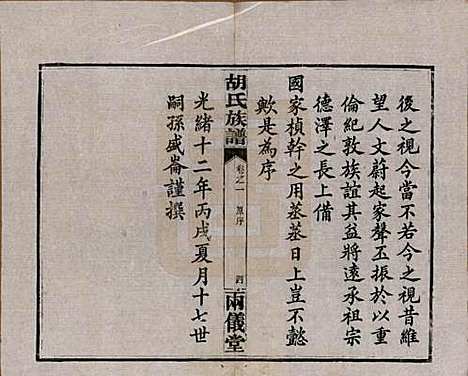 後之視今當不若今之視昔維
望人文蔚起家聲丕振於以重
倫紀敦族誼其益將遠承祖宗
德澤之長上備
國家楨幹之用蒸蒸日上豈不懿
歟是為序
胡氏族譜
卷之一
原序
四
兩儀堂
光緒十二年丙戌夏月十七世
嗣孫盛崙謹撰